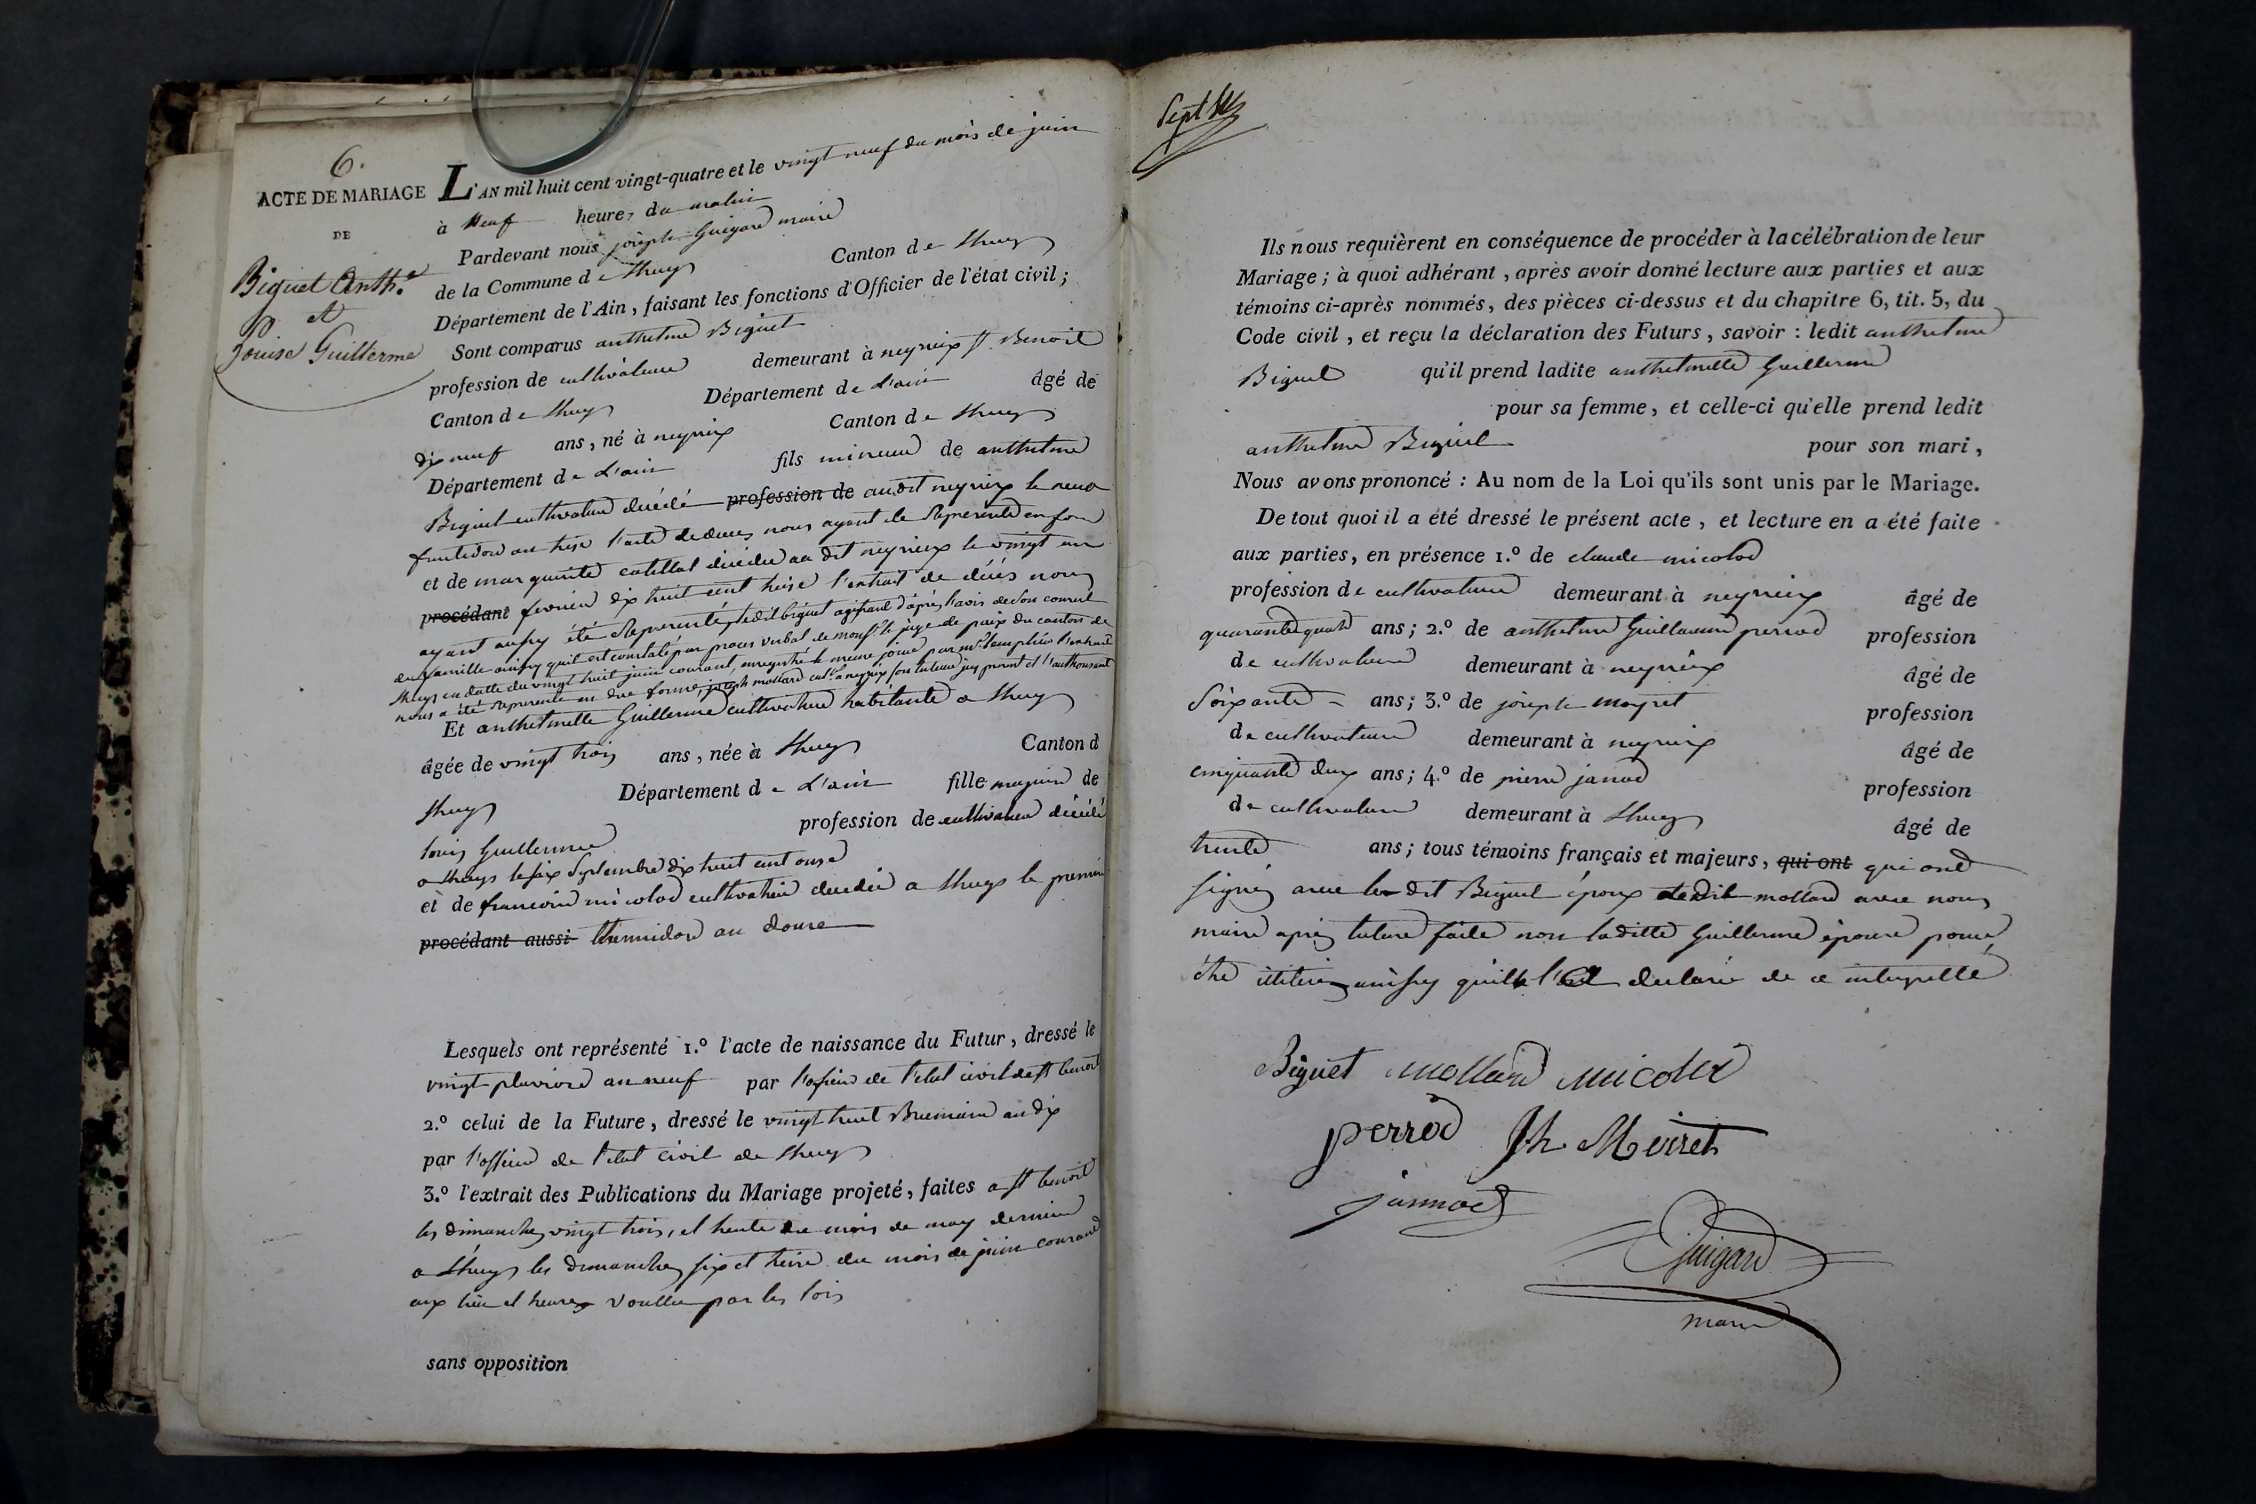 6.
ACTE DE MARIAGE
DE
Biguet Anth.e
et
Louise Guillerme
L'AN mil huit cent vingt-quatre et le vingt neuf du mois de juin
à neuf heures du matin
Pardevant nous joseph Guigard maire
de la Commune de Lhuys Canton de Lhuys
Département de l'Ain, faisant les fonctions d'Officier de l'état civil;
Sont comparus anthelme Biguet
profession de cultivateur demeurant à neyrieux st Benoit
Canton de Lhuys Département de L'ain âgé de
dix neuf ans, né à neyrieux Canton de Lhuys
Département de L'ain fils mineur de anthelme
Biguet cultivateur décédé profession de audit neyrieux le neuf
fructidor an treise l'acte de deces nous ayant ete Representé en forme
et de marguerite catillat décédée au dit neyrieux le vingt un
procédant fevrier dix huit cent treise l'extrait de décés nous
ayant aussy été Representé, ledit biguet agissant d'après l'avis de son conseil
de famille ainsy qu'il est constaté par proces verbal de monsr. le juge de paix du canton de
Lhuys en datte du vingt huit juin courant, enregistré le meme jour par mr. l'extrait
nous a été Representé en due forme, joseph mollard cultr. a neyrieux son tuteur icy present et l'authorisant
Et anthelmette Guillerme cultivatrice habitante a Lhuys
âgée de vingt trois ans, née à Lhuys Canton d
Lhuys Département de L'ain fille majeure de
louis Guillerme profession de cultivateur décédé
a Lhuys le six Septembre dix huit cent onse
et de francoise micolod cultivatrice décédée a Lhuys le premier
procédant aussi thermidor an douse
Lesquels ont représenté 1.º l'acte de naissance du Futur, dressé le
vingt pluviose an neuf par l'officier de l'etat civil de st benoit
2.º celui de la Future, dressé le vingt huit Brumaire an dix
par l'officier de l'etat civil de Lhuys
3.º l'extrait des Publications du Mariage projeté, faites a st benoit
les dimanches vingt trois, et trente du mois de may dernier
a Lhuys les dimanches six et treise du mois de juin courant
aux lieu et heures voullu par les lois
sans opposition
Sept
Ils nous requièrent en conséquence de procéder à la célébration de leur
Mariage; à quoi adhérant, après avoir donné lecture aux parties et aux
témoins ci-après nommés, des pièces ci-dessus et du chapitre 6, tit. 5, du
Code civil, et reçu la déclaration des Futurs, savoir: ledit anthelme
Biguet qu'il prend ladite anthelmette Guillerme
pour sa femme, et celle-ci qu'elle prend ledit
anthelme Biguet pour son mari,
Nous avons prononcé: Au nom de la Loi qu'ils sont unis par le Mariage.
De tout quoi il a été dressé le présent acte, et lecture en a été faite
aux parties, en présence 1.º de claude micolod
profession de cultivateur demeurant à neyrieux âgé de
quarante quatre ans; 2.º de anthelme Guillaume perrod profession
de cultivateur demeurant à neyrieux âgé de
Soixante ans; 3.º de joseph moyret profession
de cultivateur demeurant à neyrieux âgé de
cinquante deux ans; 4.º de pierre janod profession
de cultivateur demeurant à Lhuys âgé de
trente ans; tous témoins français et majeurs, qui ont qui ont
signés avec le dit Biguet époux ledit mollard avec nous
maire après lecture faite non laditte Guillerme épouse pour
être ainsy qu'elle l'a declaré de ce interpellé
Biguet mollard micolod
perrod Jh. Moiret
jannod
Guigard
maire